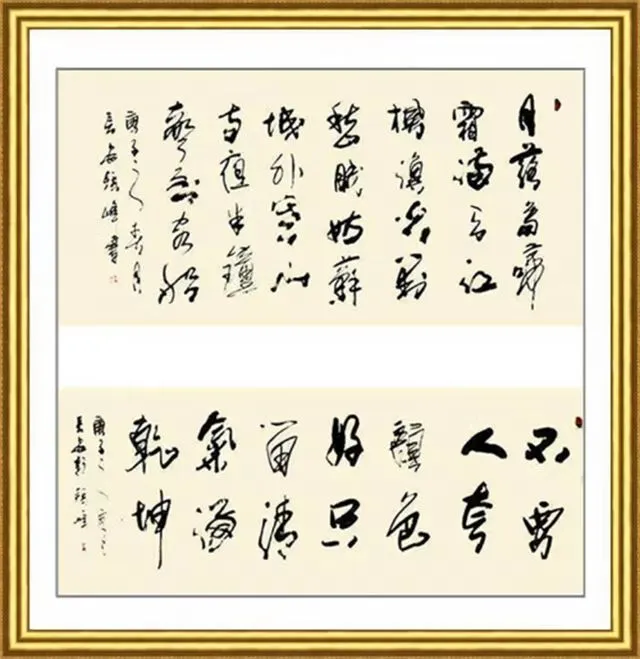 月落烏啼
霜满天江
楓漁火對
愁眠姑蘇
城外寒山
寺夜半鐘
聲到客船
庚子
長安
不要
人夸
顏色
好只
留清
氣滿
乾坤
庚子
長安